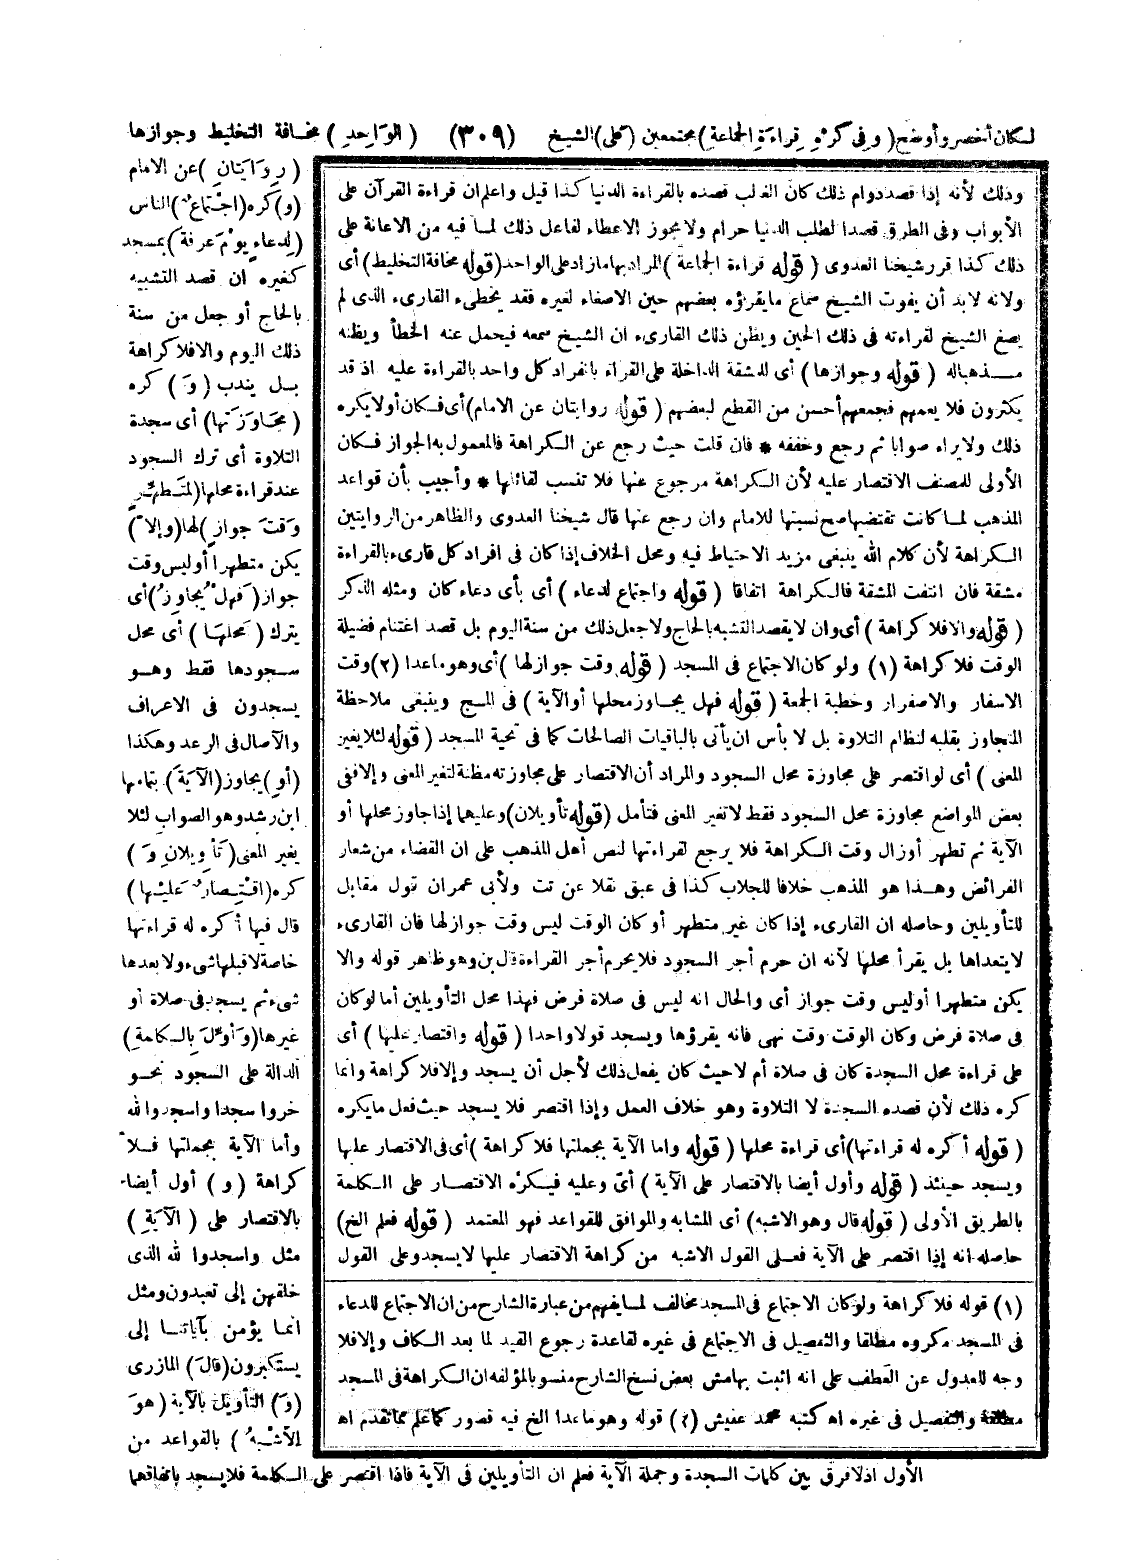 لكان أخصر وأوضح (وفى كره قراءة الجماعة) مجتمعين (على) الشيخ (٣٠٩) (الواحد) مخافة التخليط وجوازها
(روايتان) عن الامام
(و) كره (اجتماع) الناس
(لدعاء يوم عرفة) بمسجد
كغيره ان قصد التشبيه
بالحاج أو جعل من سنة
ذلك اليوم والافلا كراهة
بل يندب (و) كره
(مجاوزتها) أى سجدة
التلاوة أى ترك السجود
عند قراءة محلها (لمتطهر
وقت جواز) لها (وإلا)
يكن متطهرا أو ليس وقت
جواز (فهل يجاوز) أى
يترك (محلها) أى محل
سجودها فقط وهو
يسجدون فى الاعراف
والآصال فى الرعد وهكذا
(أو) يجاوز (الآية) بتمامها
ابن رشد وهو الصواب لئلا
يغير المعنى (تأويلان و)
كره (اقتصار عليها)
قال فيها أكره له قراءتها
خاصة لا قبلها شىء ولا بعدها
شىء ثم يسجد فى صلاة أو
غيرها (وأول بالكلمة)
الدالة على السجود نحو
خروا سجدا واسجدوا لله
وأما الآية بجملتها فلا
كراهة (و) أول أيضا
بالاقتصار على (الآية)
مثل واسجدوا لله الذى
خلقهن إلى تعبدون ومثل
انما يؤمن بآياتنا إلى
يستكبرون (قال) المازرى
(و) التأويل بالآية (هو
الأشبه) بالقواعد من
وذلك لأنه إذا قصد دوام ذلك كان الغالب قصده بالقراءة الدنيا كذا قيل واعلم ان قراءة القرآن على
الأبواب وفى الطرق قصدا لطلب الدنيا حرام ولا يجوز الاعطاء لفاعل ذلك لما فيه من الاعانة على
ذلك كذا قرر شيخنا العدوى (قوله قراءة الجماعة) المراد بها ما زاد على الواحد (قوله مخافة التخليط) أى
ولانه لابد أن يفوت الشيخ سماع ما يقرؤه بعضهم حين الاصغاء لغيره فقد يخطىء القارىء الذى لم
يصغ الشيخ لقراءته فى ذلك الحين ويظن ذلك القارىء ان الشيخ سمعه فيحمل عنه الخطأ ويظنه
مذهباله (قوله وجوازها) أى للمشقة الداخلة على القراء بانفراد كل واحد بالقراءة عليه اذ قد
يكثرون فلا يعمهم فجمعهم أحسن من القطع لبعضهم (قوله روايتان عن الامام) أى فكان أولا يكره
ذلك ولا يراه صوابا ثم رجع وخففه * فان قلت حيث رجع عن الكراهة فالمعمول به الجواز فكان
الأولى للمصنف الاقتصار عليه لأن الكراهة مرجوع عنها فلا تنسب لقائلها * وأجيب بأن قواعد
المذهب لما كانت تقتضيها صح نسبتها للامام وان رجع عنها قال شيخنا العدوى والظاهر من الروايتين
الكراهة لأن كلام الله ينبغى مزيد الاحتياط فيه ومحل الخلاف إذا كان فى افراد كل قارىء بالقراءة
مشقة فان انتفت المشقة فالكراهة اتفاقا (قوله واجتماع لدعاء) أى بأى دعاء كان ومثله الذكر
(قوله والافلا كراهة) أى وان لا يقصد التشبه بالحاج ولا جعل ذلك من سنة اليوم بل قصد اغتنام فضيلة
الوقت فلا كراهة (١) ولو كان الاجتماع فى المسجد (قوله وقت جواز لها) أى وهو ماعدا (٢) وقت
الاسفار والاصفرار وخطبة الجمعة (قوله فهل يجاوز محلها أو الآية) فى المج وينبغى ملاحظة
المتجاوز بقلبه لنظام التلاوة بل لا بأس ان يأتى بالباقيات الصالحات كما فى تحية المسجد (قوله لئلا يغير
المعنى) أى لو اقتصر على مجاوزة محل السجود والمراد أن الاقتصار على مجاوزته مظنة لتغير المعنى وإلا ففى
بعض المواضع مجاوزة محل السجود فقط لا تغير المعنى فتأمل (قوله تأويلان) وعليهما إذا جاوز محلها أو
الآية ثم تطهر أو زال وقت الكراهة فلا يرجع لقراءتها لنص أهل المذهب على ان القضاء من شعار
الفرائض وهذا هو المذهب خلافا للجلاب كذا فى عبق نقلا عن تت ولأبى عمران قول مقابل
للتأويلين وحاصله ان القارىء إذا كان غير متطهر أو كان الوقت ليس وقت جواز لها فان القارىء
لا يتعداها بل يقرأ محلها لأنه ان حرم أجر السجود فلا يحرم أجر القراءة قال بن وهو ظاهر قوله والا
يكن متطهرا أو ليس وقت جواز أى والحال انه ليس فى صلاة فرض فهذا محل التأويلين أما لو كان
فى صلاة فرض وكان الوقت وقت نهى فانه يقرؤها ويسجد قولا واحدا (قوله واقتصار عليها) أى
على قراءة محل السجدة كان فى صلاة أم لا حيث كان يفعل ذلك لأجل أن يسجد وإلا فلا كراهة وانما
كره ذلك لأن قصده السجدة لا التلاوة وهو خلاف العمل وإذا اقتصر فلا يسجد حيث فعل ما يكره
(قوله أكره له قراءتها) أى قراءة محلها (قوله واما الآية بجملتها فلا كراهة) أى فى الاقتصار عليها
ويسجد حينئذ (قوله وأول أيضا بالاقتصار على الآية) أى وعليه فيكره الاقتصار على الكلمة
بالطريق الأولى (قوله قال وهو الاشبه) أى المشابه والموافق للقواعد فهو المعتمد (قوله فعلم الخ)
حاصله انه إذا اقتصر على الآية فعلى القول الاشبه من كراهة الاقتصار عليها لا يسجد وعلى القول
(١) قوله فلا كراهة ولو كان الاجتماع فى المسجد مخالف لما يفهم من عبارة الشارح من ان الاجتماع للدعاء
فى المسجد مكروه مطلقا والتفصيل فى الاجتماع فى غيره لقاعدة رجوع القيد لما بعد الكاف وإلا فلا
وجه للعدول عن العطف على انه اثبت بهامش بعض نسخ الشارح منسوبا لمؤلفه ان الكراهة فى المسجد
مطلقة والتفصيل فى غيره اه كتبه محمد عليش (٢) قوله وهو ماعدا الخ فيه قصور كما علم مما تقدم اه
الأول اذ لا فرق بين كلمات السجدة وجملة الآية فعلم ان التأويلين فى الآية فاذا اقتصر على الكلمة فلا يسجد باتفاقهما